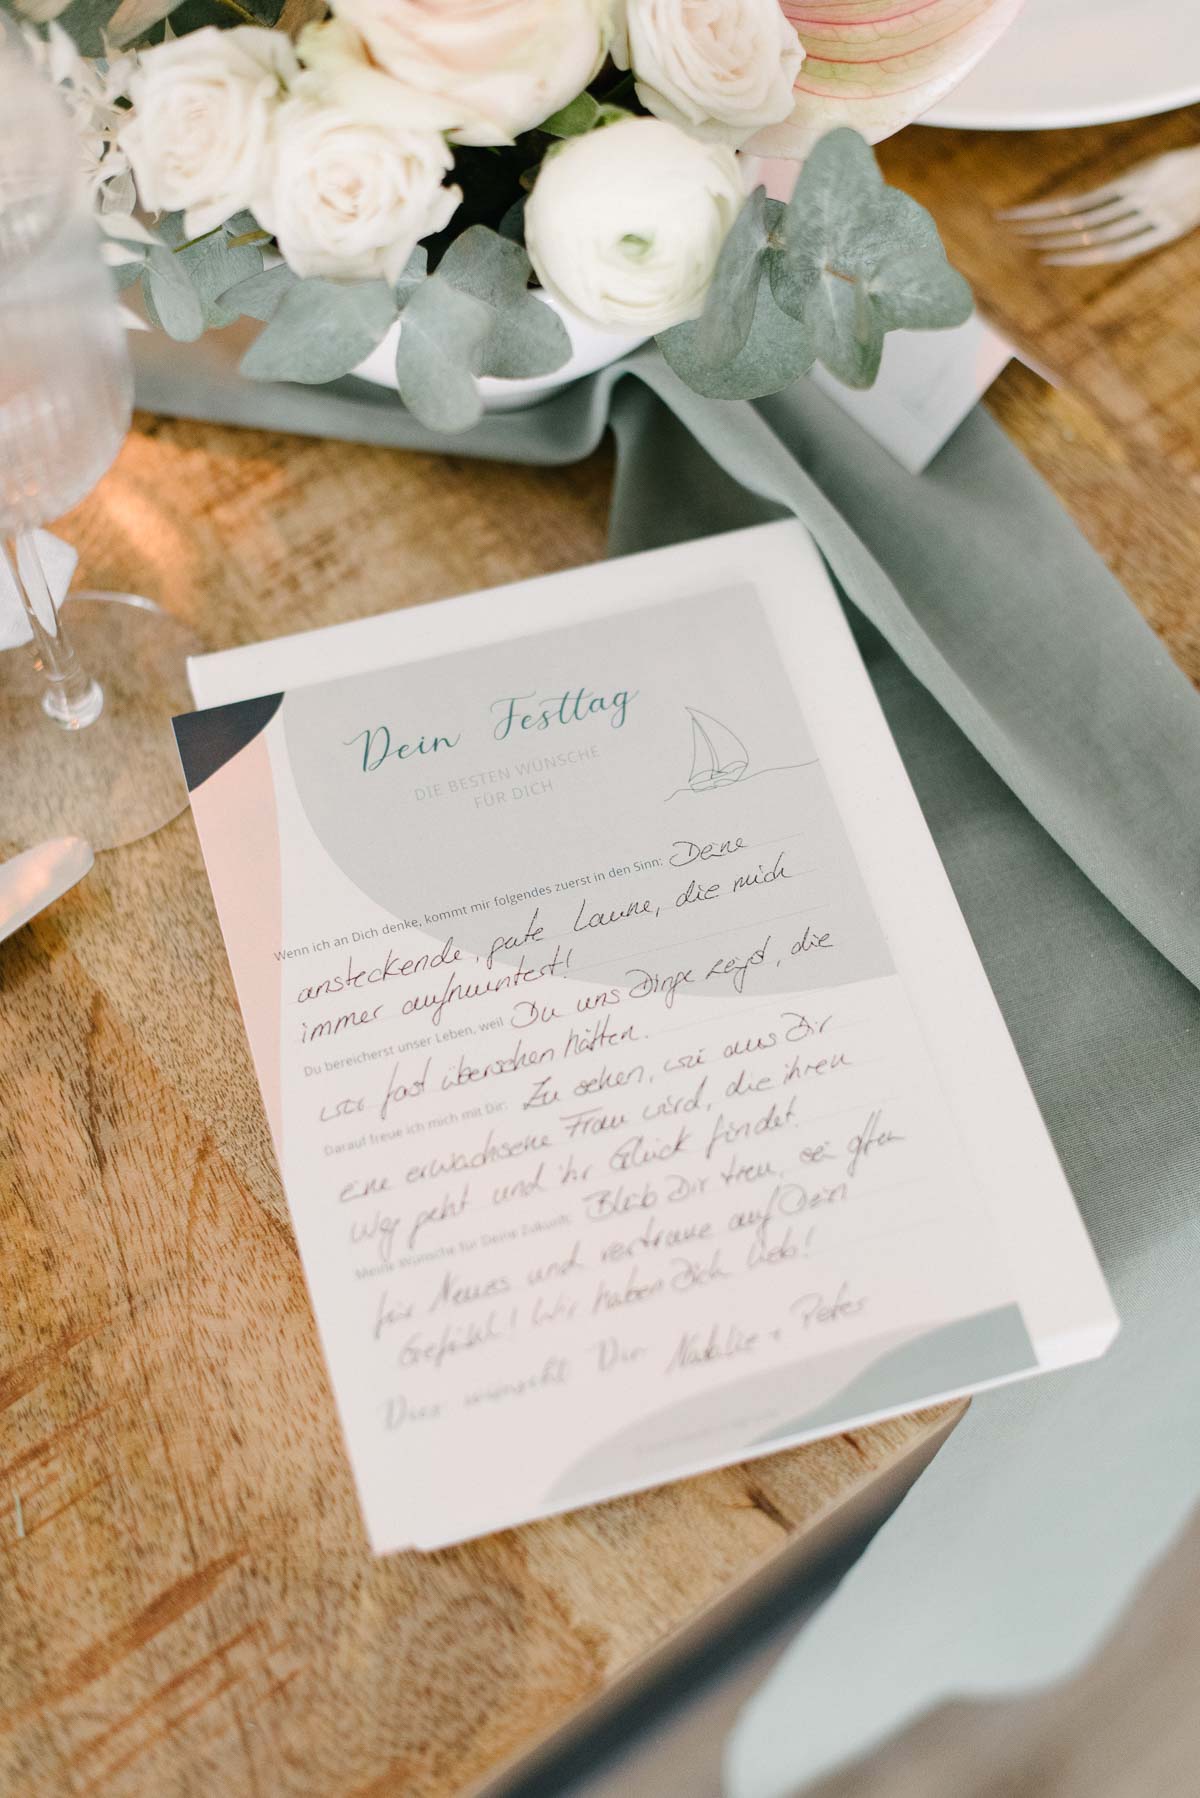 Dein Festtag
DIE BESTEN WÜNSCHE
FÜR DICH
Wenn ich an Dich denke, kommt mir folgendes zuerst in den Sinn: Deine
ansteckende, gute Laune, die mich
immer aufmuntert!
Du bereicherst unser Leben, weil Du uns Dinge zeigst, die
wir fast übersehen hätten.
Darauf freue ich mich mit Dir: Zu sehen, wie aus Dir
eine erwachsene Frau wird, die ihren
Weg geht und ihr Glück findet.
Meine Wünsche für Deine Zukunft: Bleib Dir treu, sei offen
für Neues und vertraue auf Dein
Gefühl! Wir haben Dich lieb!
Dies wünscht Dir Natalie + Peter